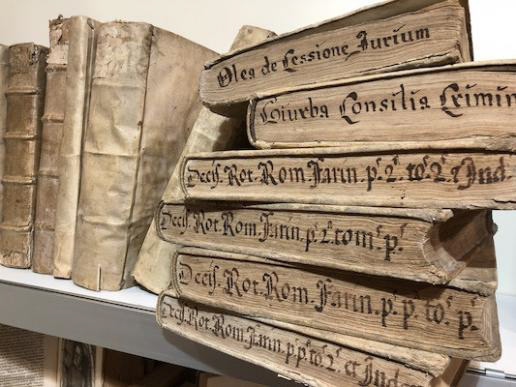 Olea de Cessione Iurium
Giurba Consilia Crimin
Decis. Rot. Rom. Farin. p.ˢ 2.ˢ to.ˢ 2.ˢ & Ind.
Decis. Rot. Rom. Farin. p.ˢ 2.ˢ tom.ˢ p.ˢ
Decis. Rot. Rom. Farin. p.ˢ p.ˢ to.ˢ p.ˢ
Decis. Rot. Rom. Farin. p.ˢ p.ˢ to.ˢ 2.ˢ et Ind.